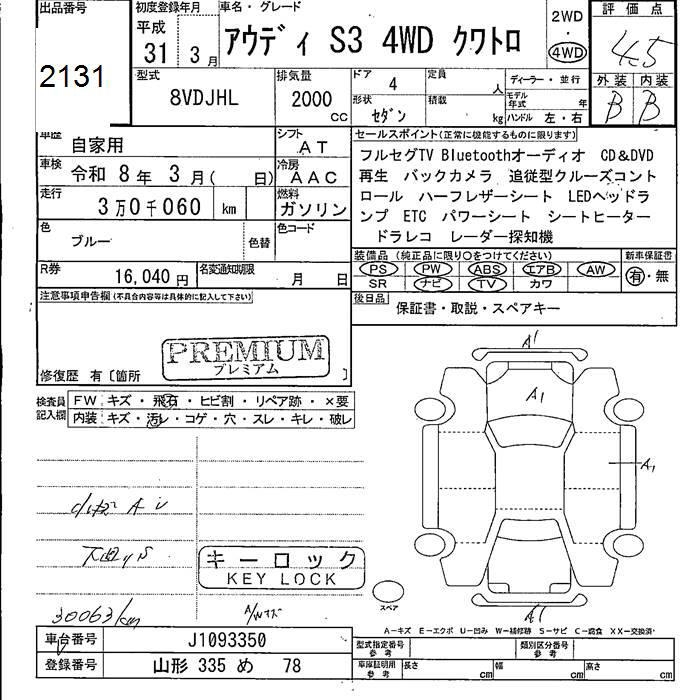 出品番号 初度登録年月 車名・グレード 2WD 評価点
2131 平成 31年 3月 アウディ S3 4WD クワトロ ・ 4WD 4.5
型式 排気量 ドア 4 定員 人 ディーラー・並行 外装 内装
8VDJHL 2000 CC 形状 セダン 積載 kg モデル年式 年 ハンドル 左・右 B B
車歴 自家用 シフト AT セールスポイント(正常に機能するものに限ります)
車検 令和 8年 3月( 日) 冷房 AAC フルセグTV Bluetoothオーディオ CD&DVD
走行 3万0千060 km 燃料 ガソリン 再生 バックカメラ 追従型クルーズコント
色 ブルー 色替 色コード ロール ハーフレザーシート LEDヘッドラ
ンプ ETC パワーシート シートヒーター
ドラレコ レーダー探知機
R券 16,040円 名変通知期限 月 日 装備品(純正品に限り○をつけてください) 新車保証書
PS PW ABS エアB AW 有・無
SR ナビ TV カワ
注意事項申告欄(不具合内容等は具体的に記入して下さい) 後日品 保証書・取説・スペアキー
PREMIUM
プレミアム
修復歴 有〔箇所 〕
検査員記入欄 FW キズ・飛石・ヒビ割・リペア跡・×要
内装 キズ・汚レ・コゲ・穴・スレ・キレ・破レ
A1
A1
A1
A1
キーロック
KEY LOCK
スペア
30063km A/Wキズ
A-キズ E-エクボ U-凹み W-補修跡 S-サビ C-腐食 XX-交換済
車台番号 J1093350 型式指定番号 参考 類別区分番号 参考
登録番号 山形 335 め 78 車庫証明用 参考 長さ cm 幅 cm 高さ cm